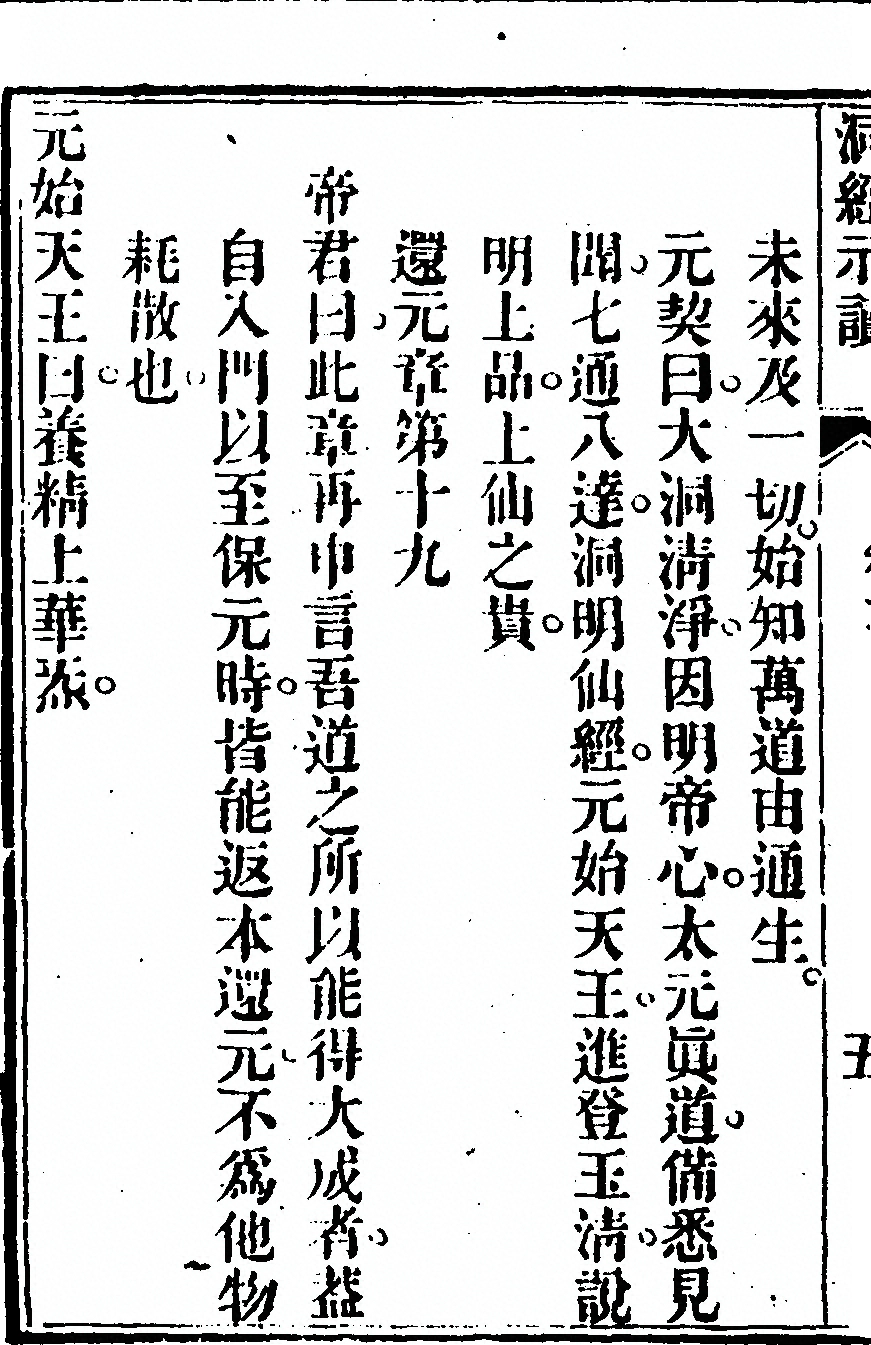 洞經示讀
未來及一切。始知萬道由通生。
元契曰。大洞淸淨。因明帝心。太元眞道。備悉見
聞。七通八達。洞明仙經。元始天王。進登玉淸。說
明上品。上仙之貴。
還元章第十九
帝君曰。此章再申言吾道之所以能得大成者。蓋
自入門以至保元時。皆能返本還元。不爲他物
耗散也。
元始天王曰。養精上華炁。